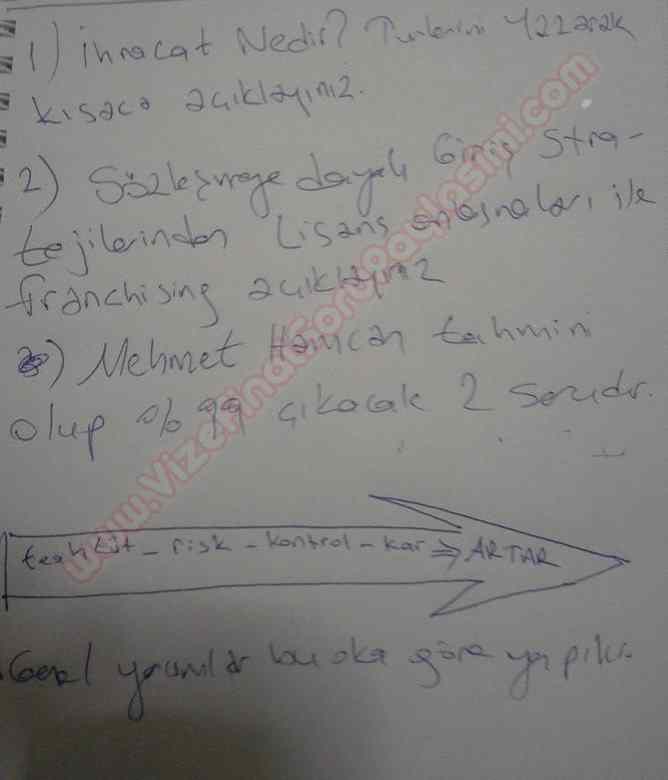 1) ihracat Nedir? Türlerini Yazarak
kısaca açıklayınız.
2) Sözleşmeye dayalı Giriş Stra-
tejilerinden Lisans anlaşmaları ile
franchising açıklayınız
) Mehmet Hamcan tahmini
olup % 99 çıkacak 2 Sorudur.
teahhüt - risk - kontrol - kar => ARTAR
Genel yorumlar bu oka göre yapılır.
www.VizeFinalSoruPaylasimi.com